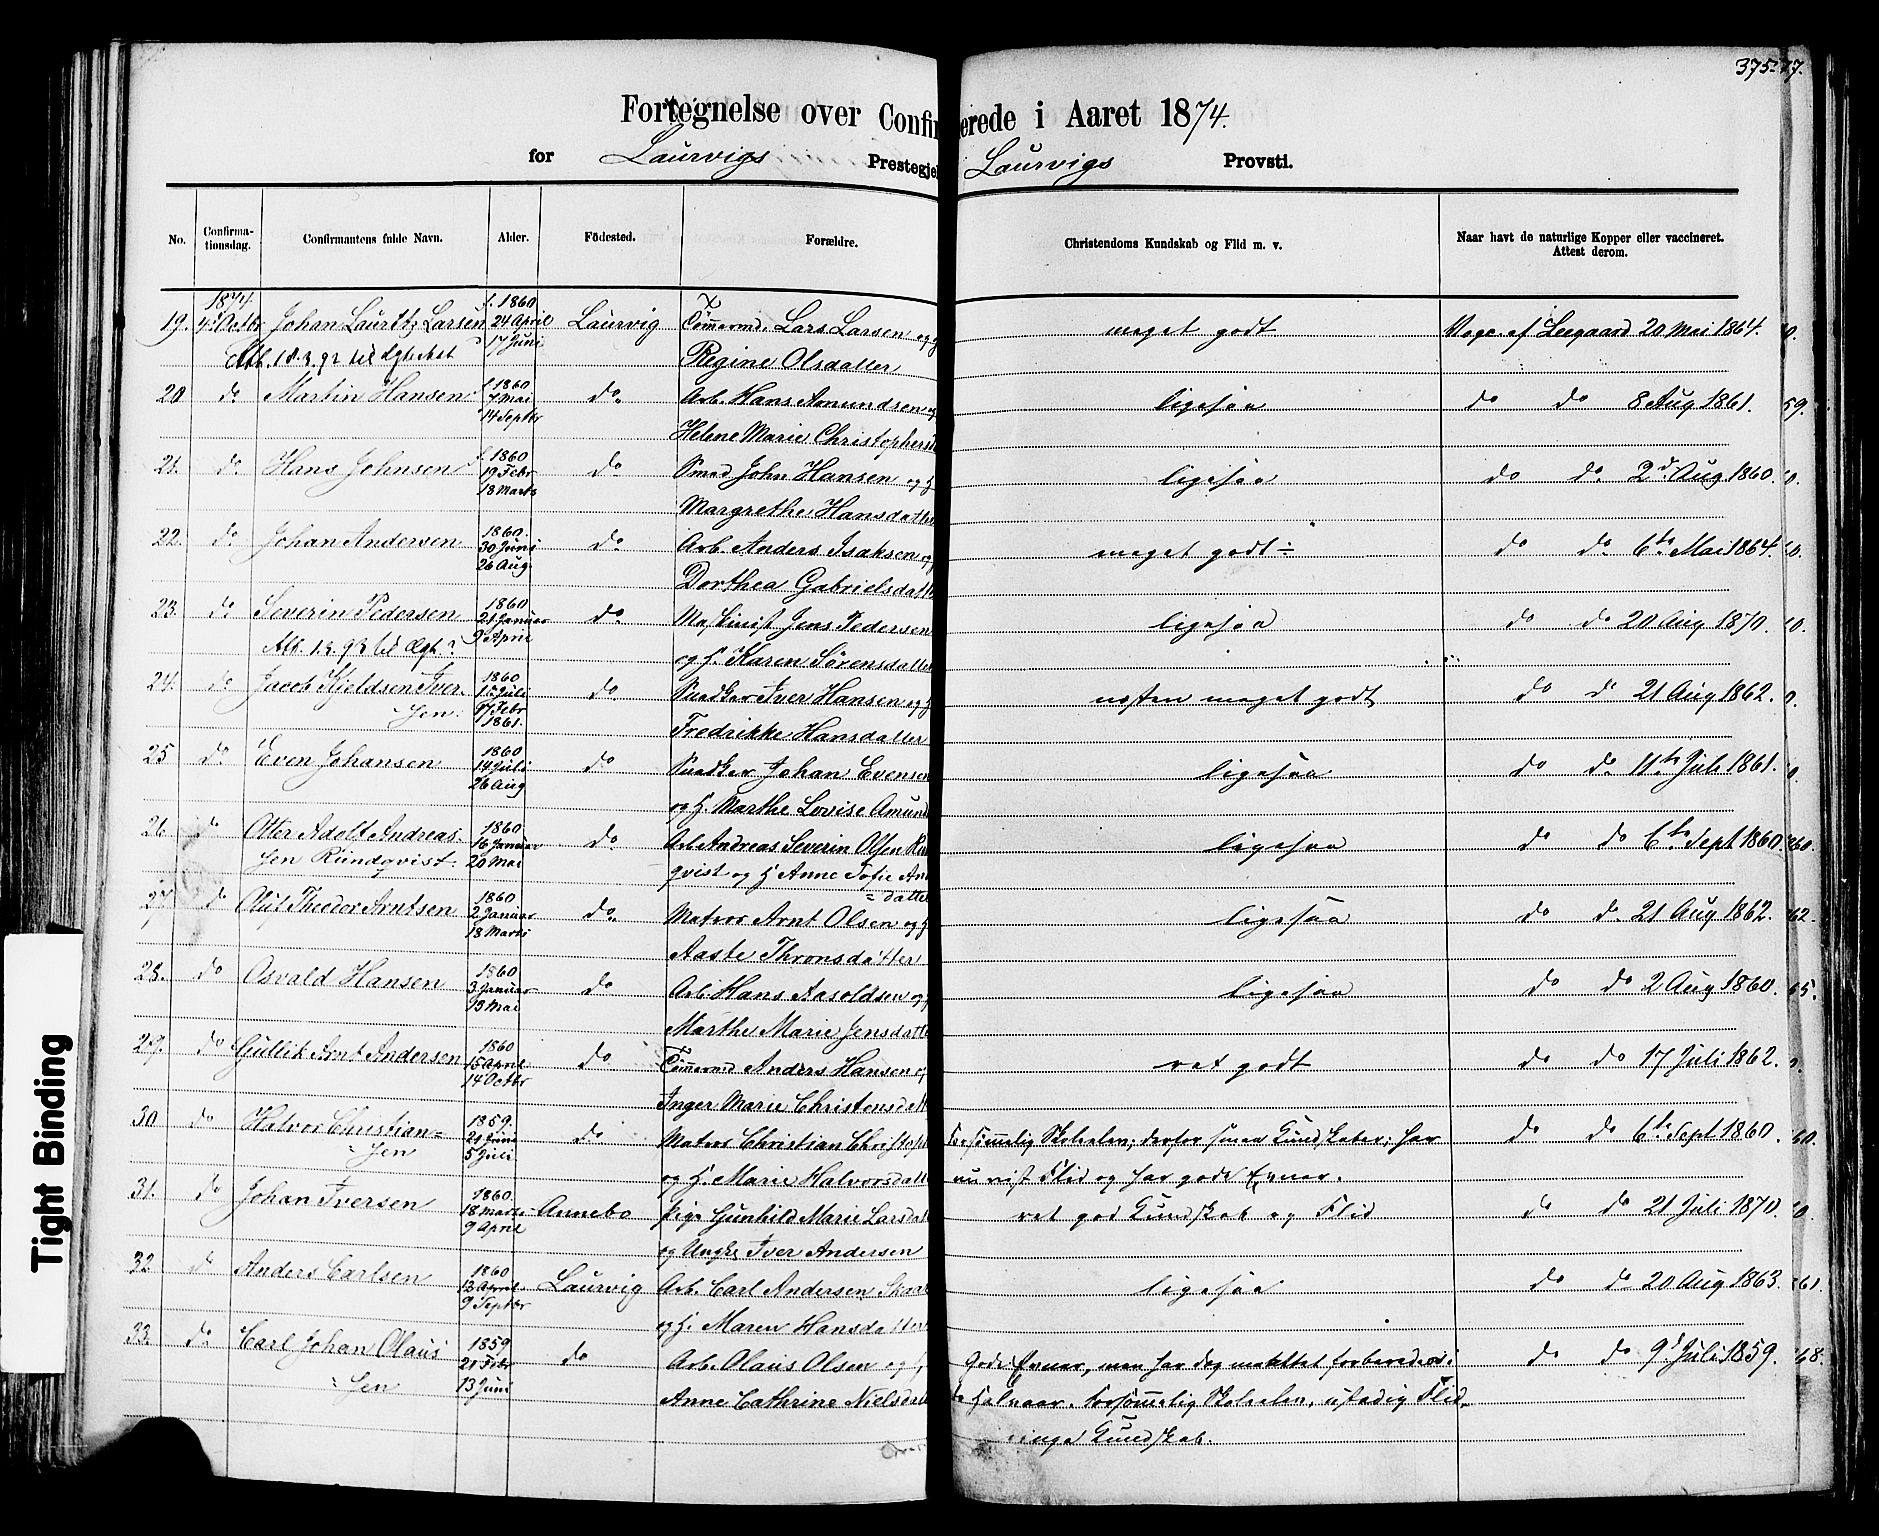 375-77.
Fortegnelse over Confirmerede i Aaret 1874.
for Laurvigs Prestegjel Laurvigs Provsti.
No. Confirmationsdag. Confirmantens fulde Navn. Alder. Födested. Forældre. Christendoms Kundskab og Flid m. v. Naar havt de naturlige Kopper eller vaccineret. Attest derom.
1874 f. 1860
19. 4de Octbr Johan Lauritz Larsen 24 April Laurvig Tömmermd. Lars Larsen og meget godt Vace. af Leegaard 20 Mai 1864.
Att. 18.3.92 til Ægteskab 17 Juni Regine Olsdatter
20 do Martin Hansen f. 1860 7 Mai do Arb. Hans Amundsen og ligesaa do do 8 Aug 1861. 59.
14 Septbr Helene Marie Christophers
21. do Hans Johnsen f. 1860 19 Febr do Smed John Hansen og H ligesaa do do 2d Aug 1860.
18 Marts Margrethe Hansdatter
22. do Johan Andersen 1860. 30 Juni do Arb. Anders Isaksen og meget godt ÷ do do 6te Mai 1864.
26 Aug. Dorthea Gabrielsdatt
23. do Severin Pedersen 1860 21 Januar do Maskinist Jens Pedersen ligesaa do do 20 Aug 1870.
Att. 1.3.93 til Ægt. 9 April og H. Karen Sörensdatter
24. do Jacob Kjeldsen Iver- 1860 11 Juli do Snedker Iver Hansen og H næsten meget godt do do 21 Aug 1862.
sen. 17 Febr 1861. Fredrikke Hansdatter
25 do Even Johansen 1860 14 Juli do Snedker Johan Evensen ligesaa do do 11te Juli 1861.
26 Aug og H. Marthe Lovise Amund
26 do Otter Adolf Andreas- 1860 16 Januar do Arb Andreas Severin Olsen Run ligesaa do do 6te Sept 1860. 60.
sen Rundqvist. 20 Mai qvist og H Anne Sofie An
= datte
27 do Oluf Theodor Arntsen 1860 2 Januar do Matros Arnt Olsen og H ligesaa do do 21 Aug 1862. 62.
18 Marts Aaste Thronsdatter
28. do Osvald Hansen 1860 3 Januar do Arb. Hans Aasoldsen og ligesaa do do 2 Aug 1860. 65.
13 Mai Marthe Marie Jensdatte
29. do Gullik Arnt Andersen 1860 15 April do Tömmermd Anders Hansen og ret godt do do 17 Juli 1862.
14 Octbr Inger Marie Christensdatt
30 do Halvor Christian= 1859. 21 Juni do Matros Christian Christoph Forsömmelig Skolesøen; derfor smaa Kundskaber; har do do 6te Sept 1860. 60.
sen 5 Juli og H. Marie Halvorsdatt nu vist Flid og har gode Evner.
31. do Johan Iversen 1860 18 Marts Annebo Pige Gunhild Marie Larsdatt ret god Kundskab og Flid do do 21 Juli 1870.
9 April og Ungk. Iver Andersen
32 do Anders Carlsen 1860 12 April Laurvig Arb. Carl Andersen ligesaa do do 20 Aug 1863. 61.
9 Septbr og H. Maren Hansdatter
33. do Carl Johan Olaus 1859 21 Febr do Arb. Olaus Olsen og H Gode Evner, men har dog maattet forberedes i do do 9d Juli 1859. 68.
= sen 13 Juni Anne Cathrine Nielsdatt Halvaar. Forsömmelig, ustadig Flid.
ringe Kundskab.
Tight Binding